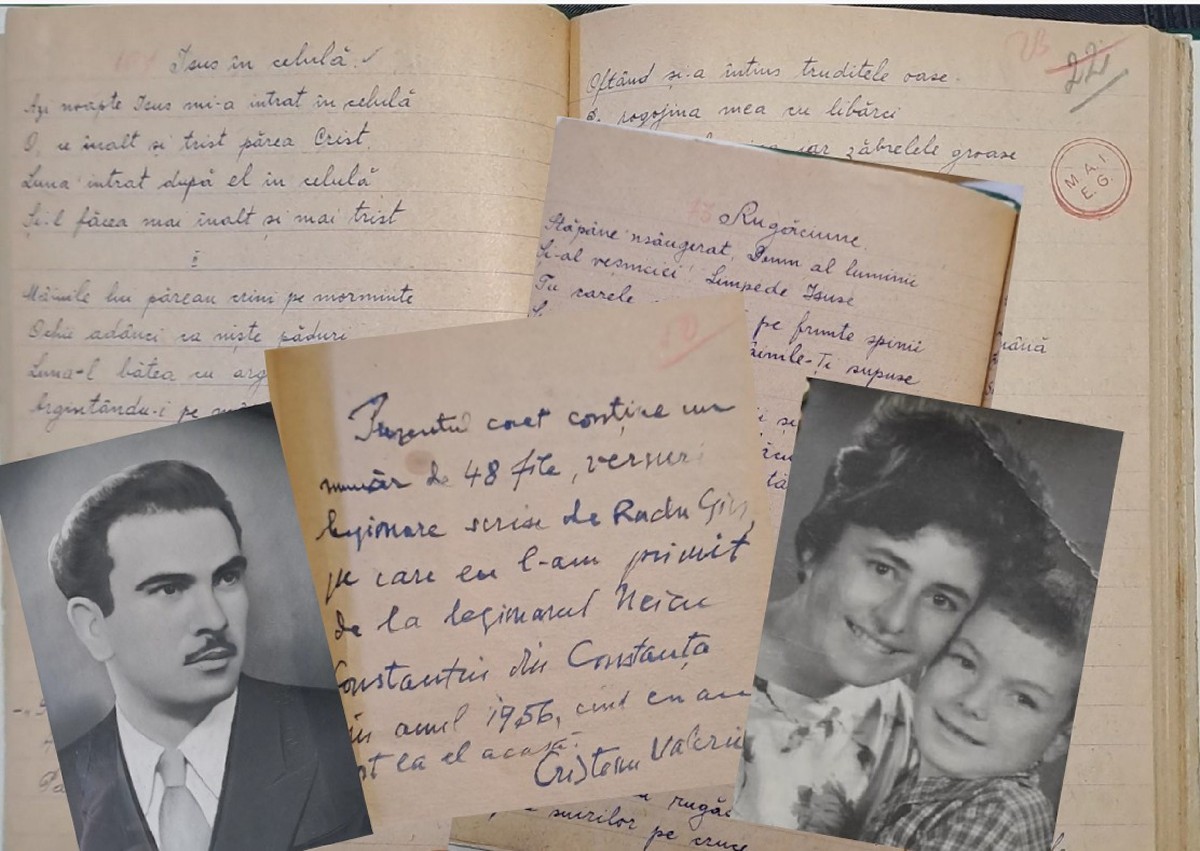 Isus în celulă.
Azi noapte Isus mi-a intrat în celulă
O, ce înalt și trist părea Crist,
Luna intrat după el în celulă
Și-l făcea mai înalt și mai trist
I
Mâinile lui păreau crini pe morminte
Ochii adânci ca niște păduri
Luna-l bătea cu arg
Argintându-i pe
22
Oftând și-a întins truditele oase
rogojina mea cu libărci
iar zăbrelele groase
M.A.I
E.G.
Rugăciune.
Stăpâne 'nsângerat, Domn al luminii
Și-al veșniciei Limpede Isuse
Tu carele
pe frunte spinii
supuse
până
Prezentul caet conține un
număr de 48 file, versuri
legionare scrise de Radu Gir
pe care eu l-am primit
de la legionarul Neicu
Constantin din Constanța
în anul 1956, cînd eu am
la el acasă.
Cristem Valeriu
rugăc
pe cruce